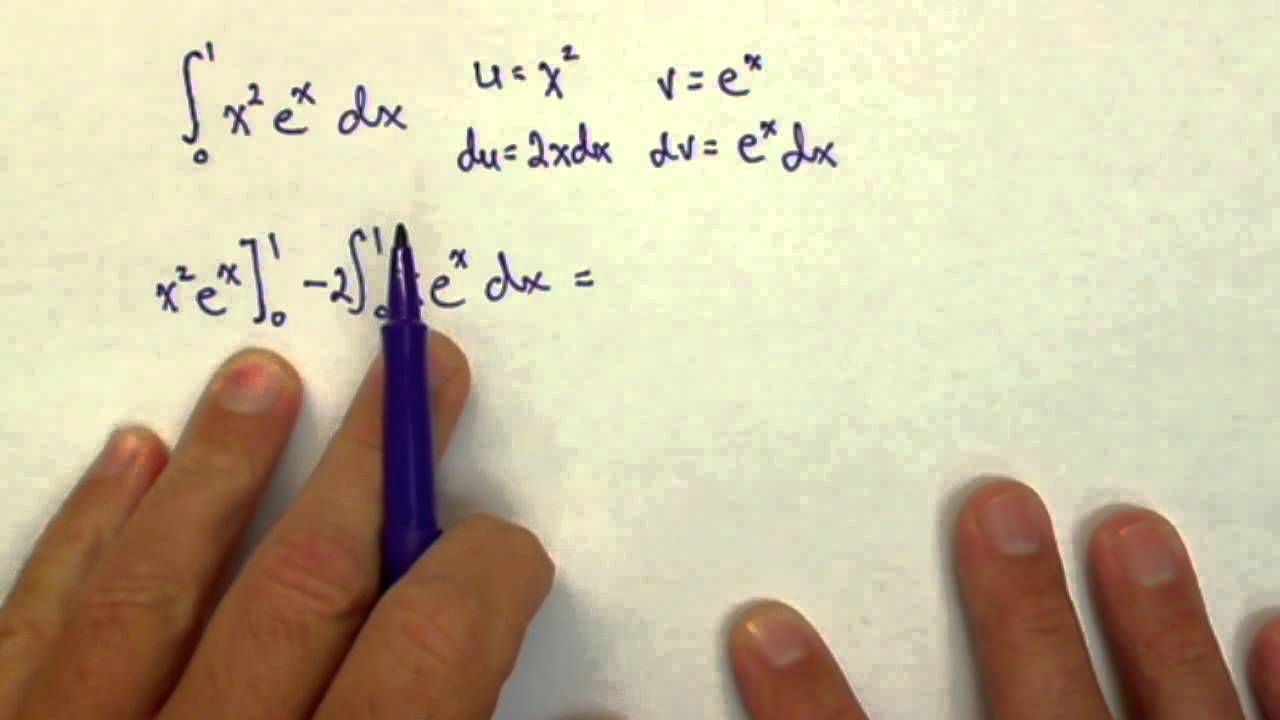 ∫₀¹ x² eˣ dx u = x² v = eˣ
du = 2x dx dv = eˣ dx
x² eˣ]₀¹ - 2∫₀¹ eˣ dx =